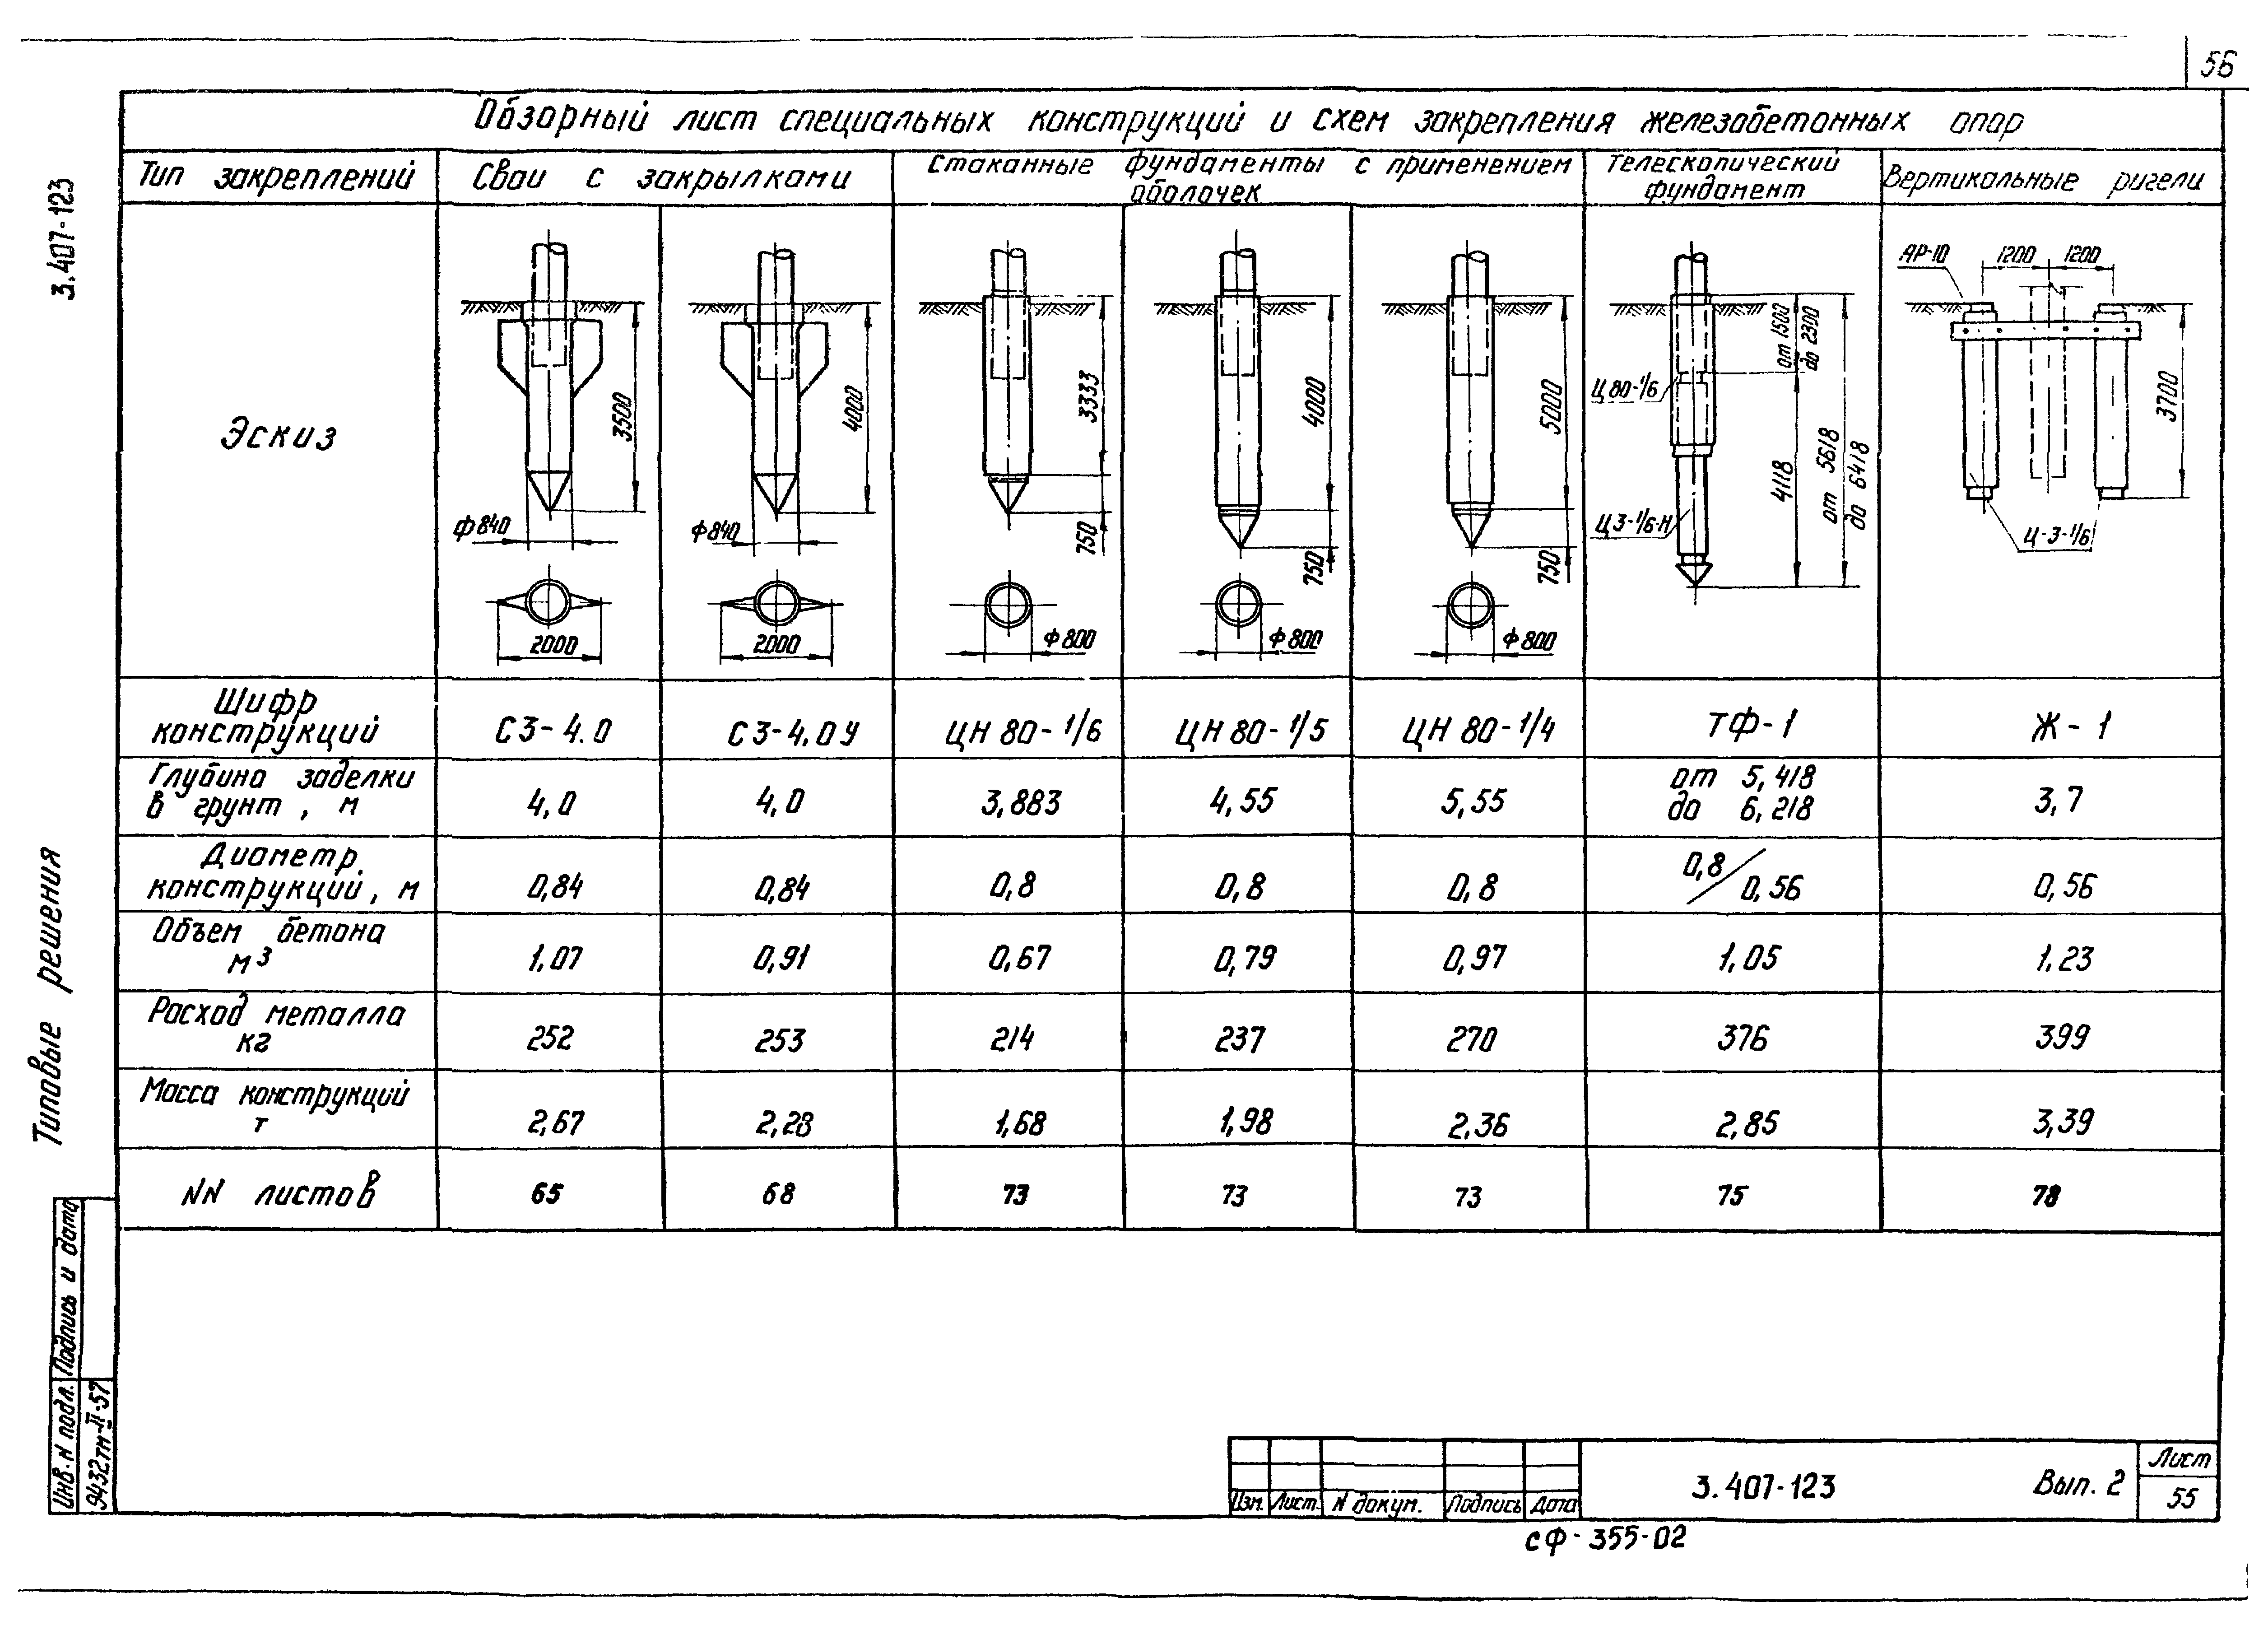 56
3.407-123
Типовые решения
Обзорный лист специальных конструкций и схем закрепления железобетонных опор
Тип закреплений
Сваи с закрылками
Стаканные фундаменты с применением
оболочек
Телескопический
фундамент
Вертикальные ригели
Эскиз
3500
ф 840
2000
4000
ф 840
2000
3333
750
ф 800
4000
750
ф 800
5000
750
ф 800
от 1500
до 2300
Ц 80-1/6
4118
от 5618
до 6418
Ц 3-1/6-Н
АР-10
1200
1200
3700
Ц-3-1/6
Шифр
конструкций
С3-4.0
С3-4.0У
ЦН 80-1/6
ЦН 80-1/5
ЦН 80-1/4
ТФ-1
Ж-1
Глубина заделки
в грунт, м
4,0
4,0
3,883
4,55
5,55
от 5,418
до 6,218
3,7
Диаметр
конструкций, м
0,84
0,84
0,8
0,8
0,8
0,8/0,56
0,56
Объем бетона
м3
1,07
0,91
0,67
0,79
0,97
1,05
1,23
Расход металла
кг
252
253
214
237
270
376
399
Масса конструкций
т
2,67
2,28
1,68
1,98
2,36
2,85
3,39
NN листов
65
68
73
73
73
75
78
Инв. N подл.
Подпись и дата
9432тм-II-57
Изм.
Лист
N докум.
Подпись
Дата
3.407-123
Вып. 2
Лист
55
СФ-355-02